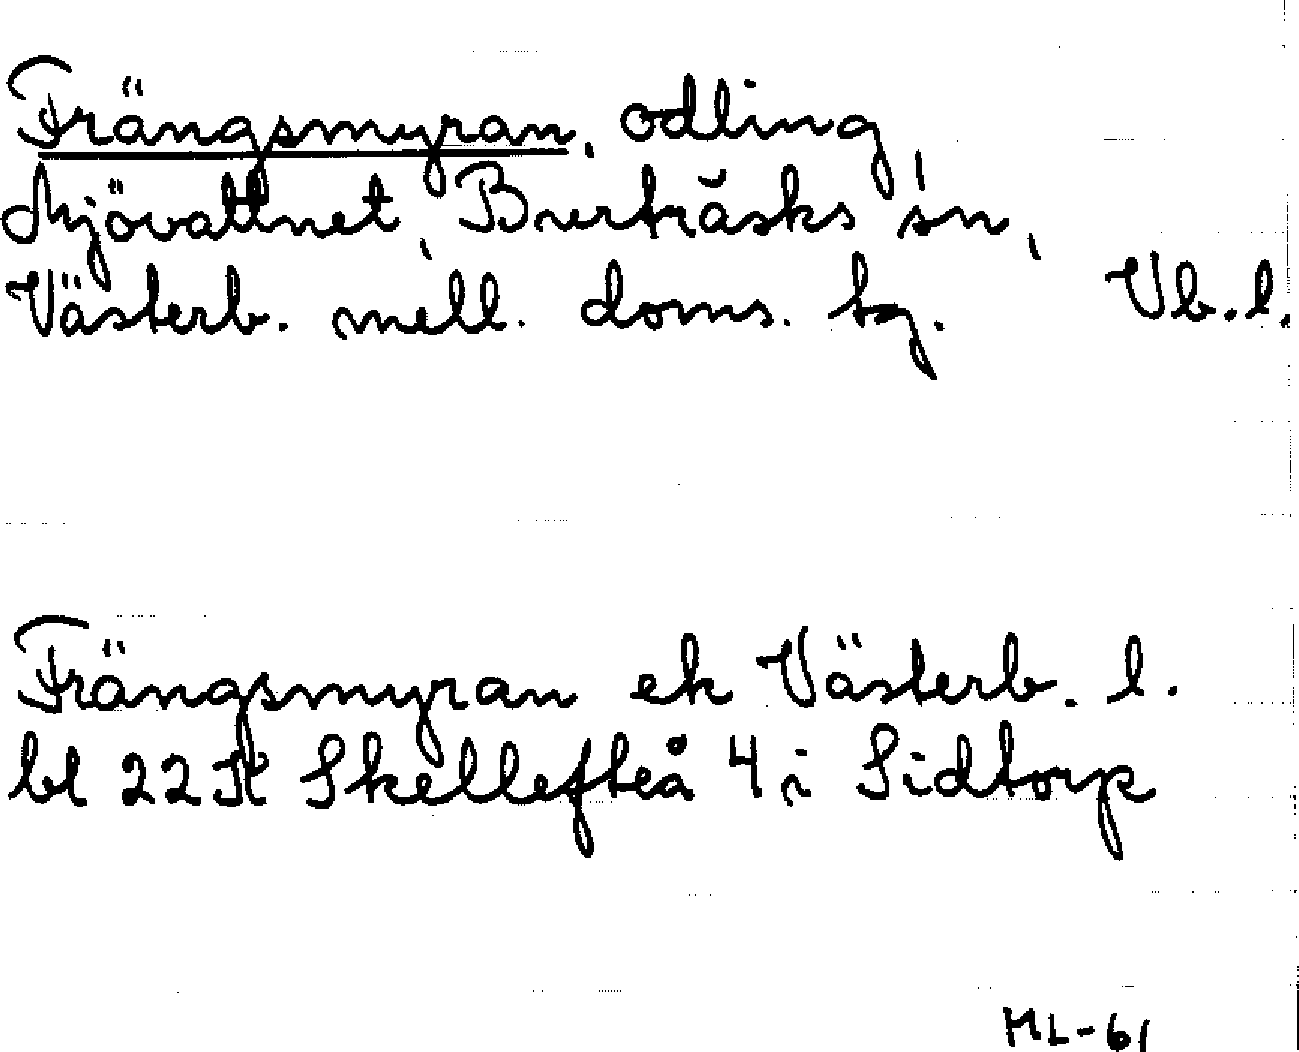 Frängsmyran, odling,
Mjövattnet, Burträsks sn,
Västerb. mell. doms. tg. Vb.l.
Frängsmyran ek Västerb. l.
bl 22 K Skellefteå 4 i Sidtorp
ML-61